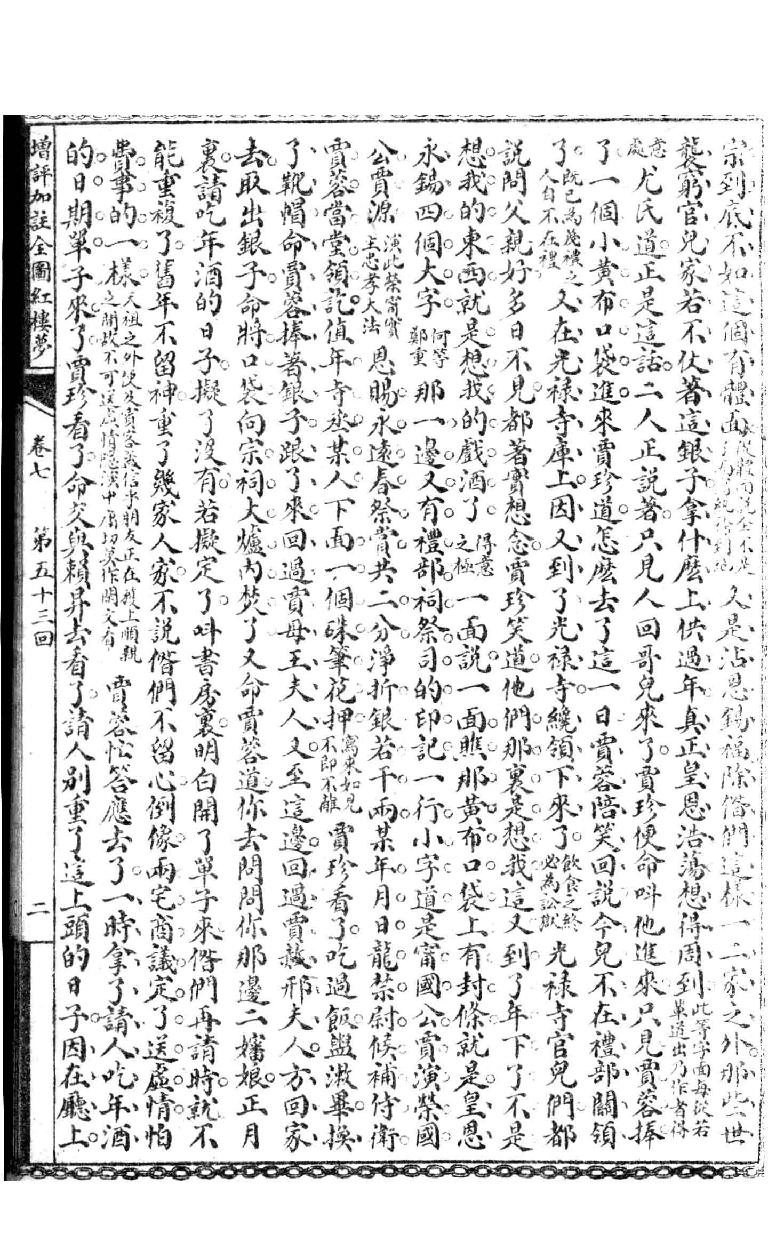 宗到底不如這個有體面又是沾恩錫福除偺們這樣一二家之外那些世
襲窮官兒家若不仗著這銀子拿什麽上供過年真正皇恩浩蕩想得周到此等字面每從若輩道出乃作者得
意處尤氏道正是這話二人正説著只見人回哥兒來了賈珍便命呌他進來只見賈蓉捧
了一個小黄布口袋進來賈珍道怎麽去了這一日賈蓉陪笑回説今兒不在禮部關領
了既已為蔑禮之人自不在禮又在光禄寺庫上因又到了光禄寺纔領下來了飲食之終必為訟獄光禄寺官兒們都
説問父親好多日不見都著實想念賈珍笑道他們那裏是想我這又到了年下了不是
想我的東西就是想我的戲酒了得意之極一面説一面瞧那黄布口袋上有封條就是皇恩
永錫四個大字何等鄭重那一邊又有禮部祠祭司的印記一行小字道是甯國公賈演榮國
公賈源演此榮甯實主忠孝大法恩賜永遠春祭賞共二分淨折銀若干兩某年月日龍禁尉候補侍衛
賈蓉當堂領訖值年寺丞某人下面一個硃筆花押寫來如見不即不離賈珍看了吃過飯盥漱畢換
了靴帽命賈蓉捧著銀子跟了來回過賈母王夫人又至這邊回過賈赦邢夫人方回家
去取出銀子命將口袋向宗祠大爐内焚了又命賈蓉道你去問問你那邊二嬸娘正月
裏請吃年酒的日子擬了沒有若擬定了呌書房裏明白開了單子來偺們再請時就不
能重複了舊年不留神重了幾家人家不説偺們不留心倒像兩宅商議定了送虚情怕
費事的一樣賈蓉忙答應去了一時拿了請人吃年酒
的日期單子來了賈珍看了命交與賴昇去看了請人别重了這上頭的日子因在廳上
增評加註全圖紅樓夢 卷七 第五十三回 二